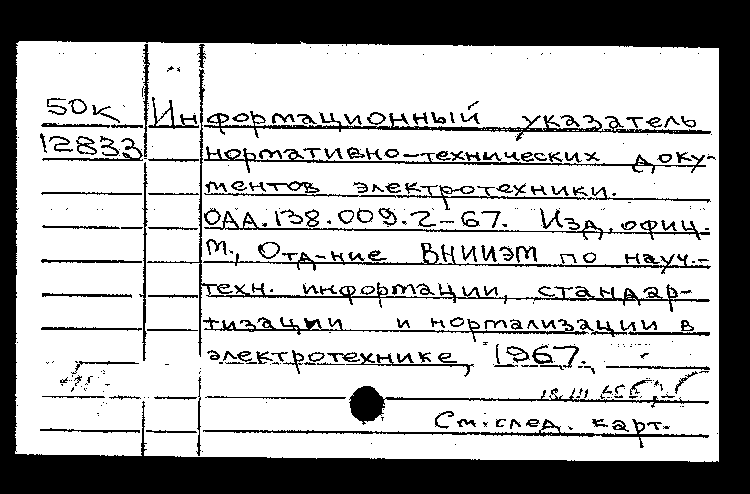 50К Информационный указатель
12833 нормативно-технических доку-
ментов электротехники.
ОАА.138.009.2-67. Изд. офиц.
М., Отд-ние ВНИИЭМ по науч.-
техн. информации, стандар-
тизации и нормализации в
электротехнике, 1967.
18.III
См. след. карт.